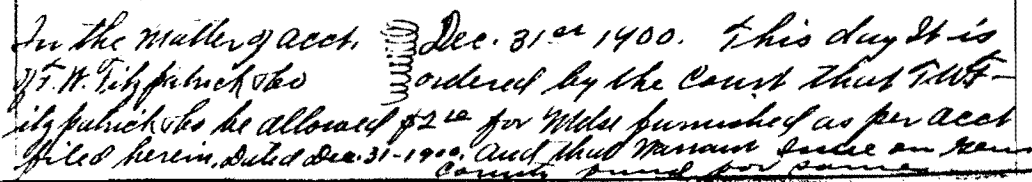 In the matter of acct. Dec. 31st 1900. This day It is
of T. W. Fitzpatrick & Co ordered by the Court that T W F-
itzpatrick & Co be allowed $2 for Mdse furnished as per acct
filed herein, Dated Dec. 31-1900. And that Warrant Issue on Genr
County Fund for same